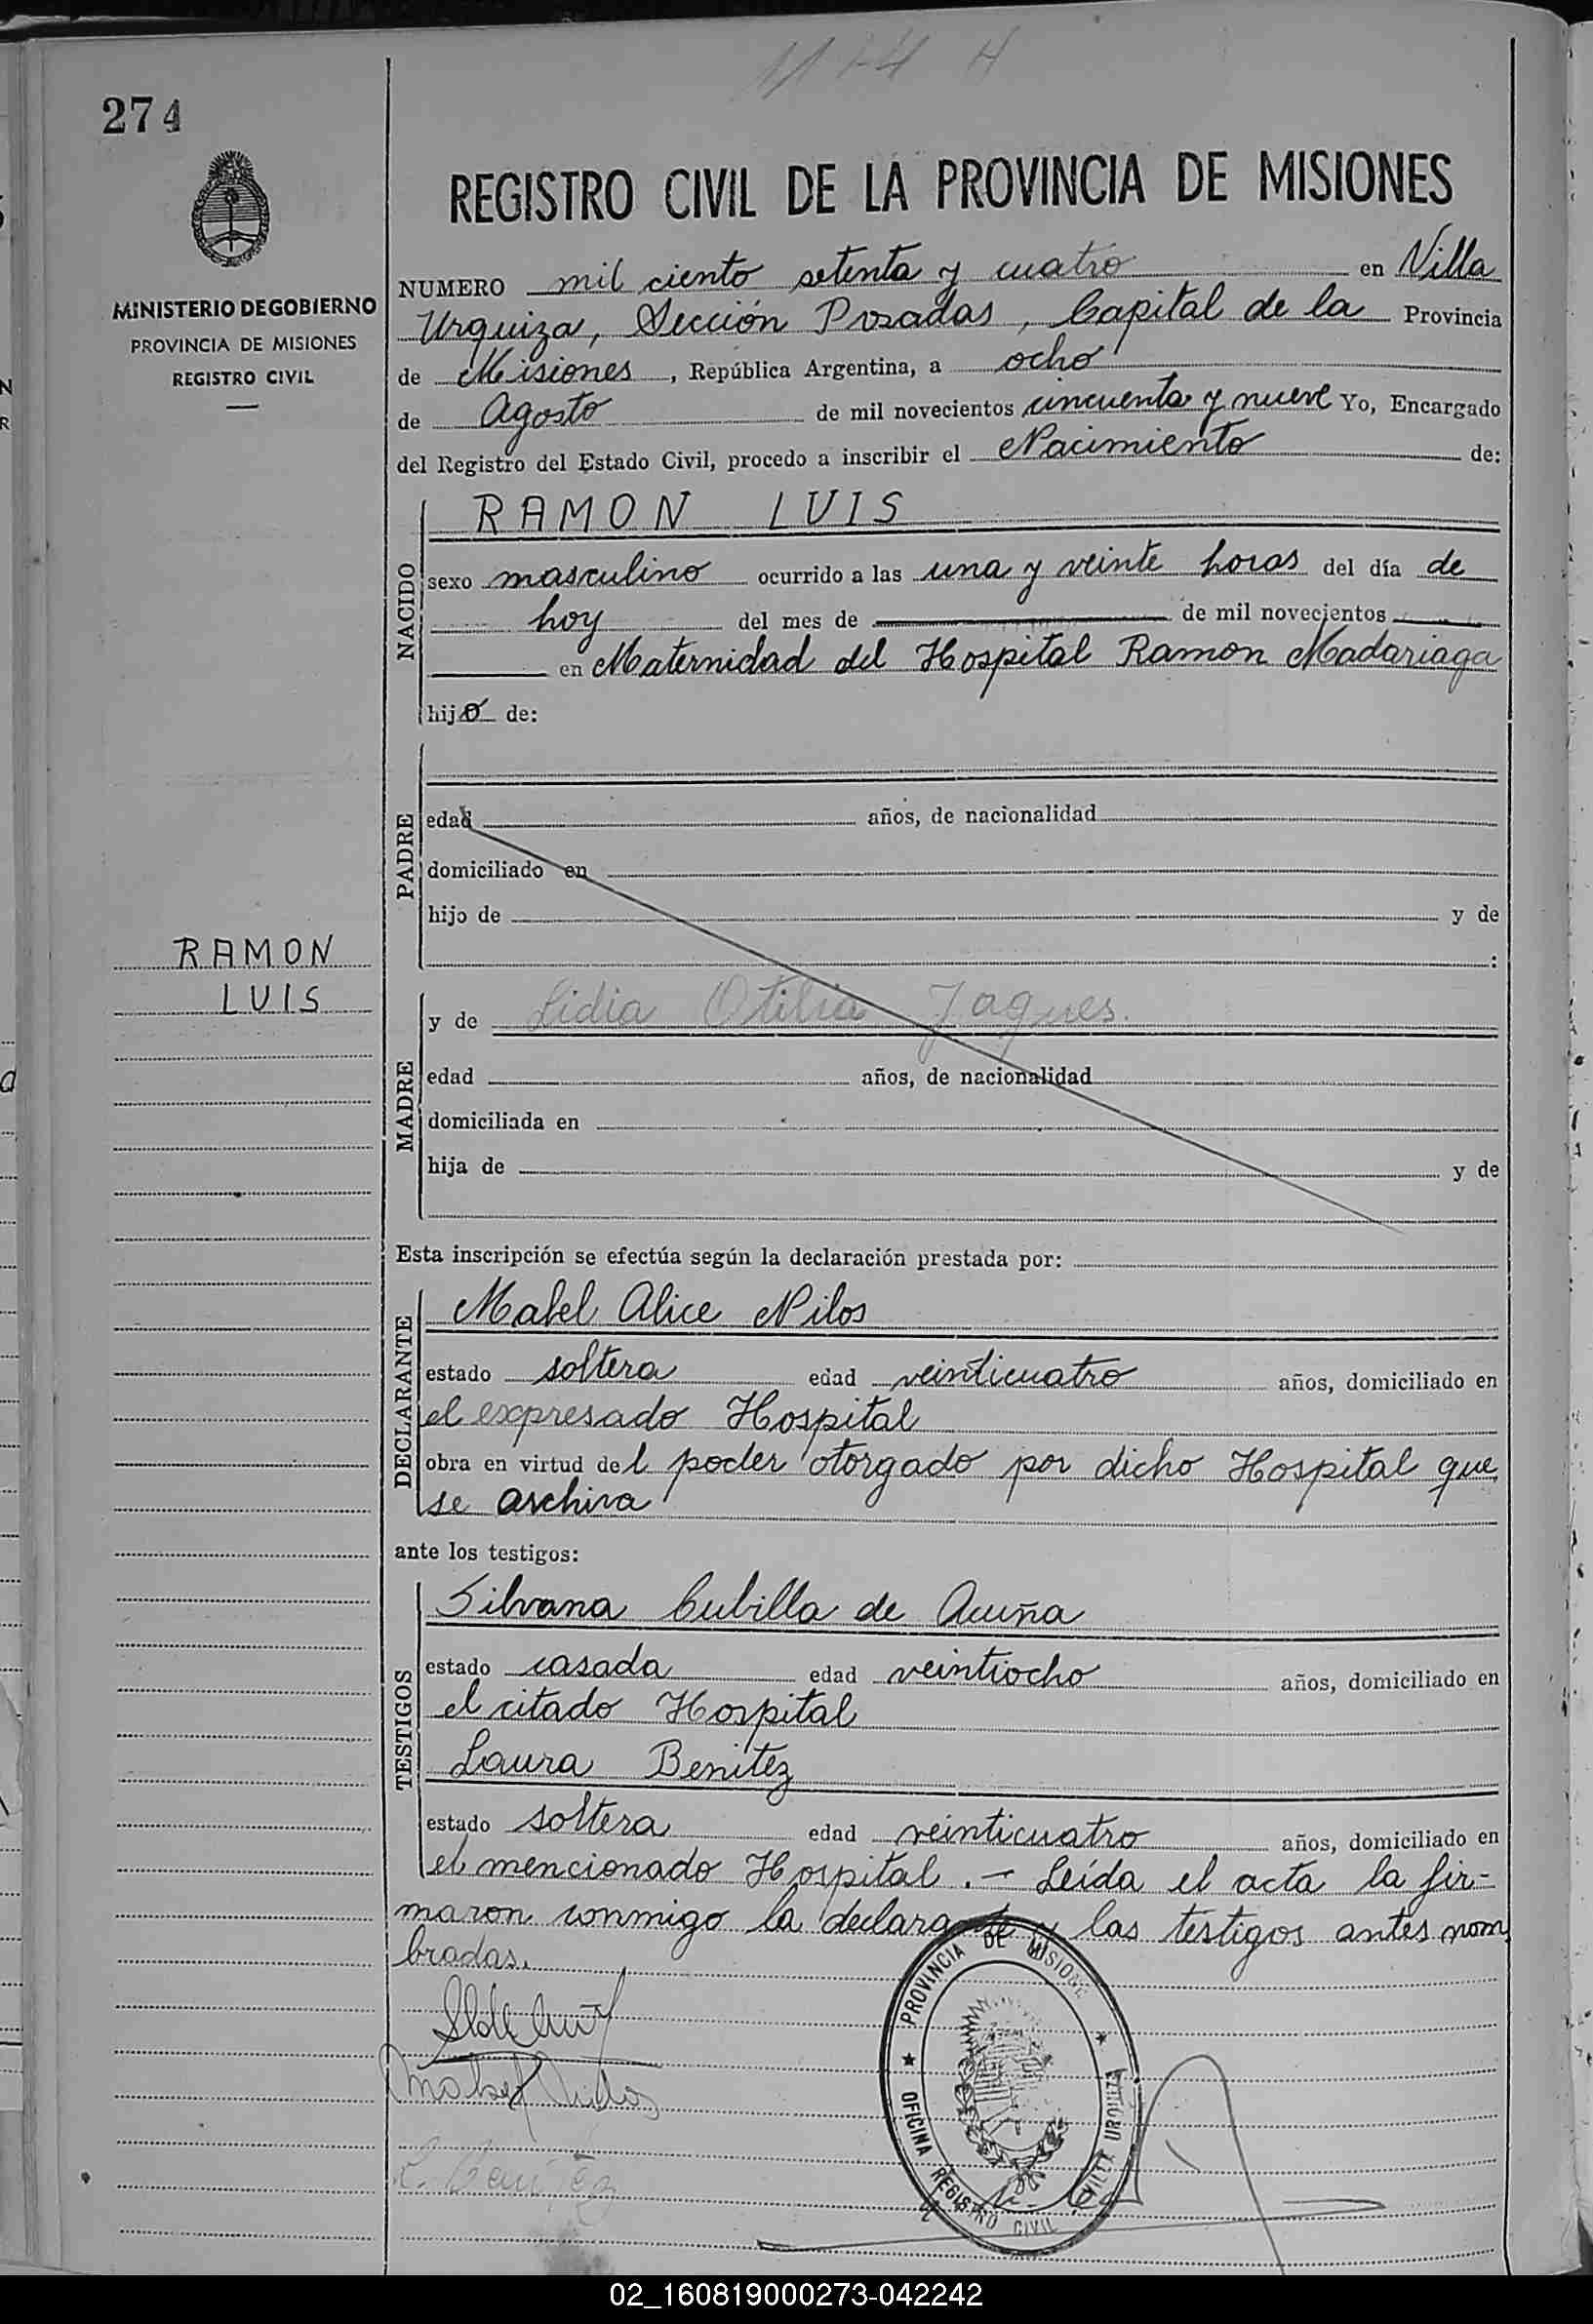 274
MINISTERIO DE GOBIERNO
PROVINCIA DE MISIONES
REGISTRO CIVIL
RAMON
LUIS
REGISTRO CIVIL DE LA PROVINCIA DE MISIONES
NUMERO mil ciento setenta y cuatro en Villa
Urquiza, Sección Posadas, Capital de la Provincia
de Misiones, República Argentina, a ocho
de Agosto de mil novecientos cincuenta y nueve Yo, Encargado
del Registro del Estado Civil, procedo a inscribir el Nacimiento de:
NACIDO
RAMON LUIS
sexo masculino ocurrido a las una y veinte horas del día de
hoy del mes de de mil novecientos
en Maternidad del Hospital Ramon Madariaga
hijo de:
PADRE
edad años, de nacionalidad
domiciliado en
hijo de y de
:
MADRE
y de Lidia Otilia Jaques.
edad años, de nacionalidad
domiciliada en
hija de y de
Esta inscripción se efectúa según la declaración prestada por:
DECLARANTE
Mabel Alice Nilos
estado soltera edad veinticuatro años, domiciliado en
el expresado Hospital
obra en virtud del poder otorgado por dicho Hospital que
se archiva
ante los testigos:
TESTIGOS
Silvana Cubilla de Acuña
estado casada edad veintiocho años, domiciliado en
el citado Hospital
Laura Benitez
estado soltera edad veinticuatro años, domiciliado en
el mencionado Hospital.- Leída el acta la fir=
maron conmigo la declarante y las testigos antes nom
bradas.
L. Benitez
PROVINCIA DE MISIONES
OFICINA REGISTRO CIVIL
VILLA URQUIZA
02_160819000273-042242